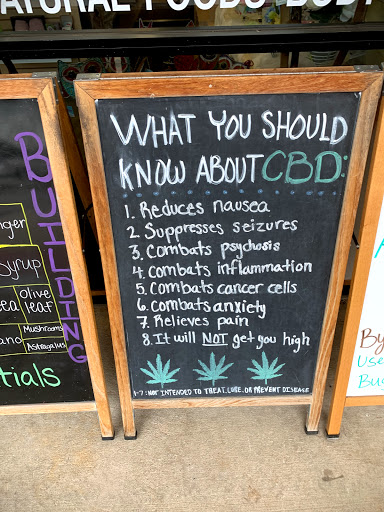 NATURAL FOODS BODY
WHAT YOU SHOULD
KNOW ABOUT CBD:
1. Reduces nausea
2. Suppresses seizures
3. Combats psychosis
4. combats inflammation
5. Combats cancer cells
6. combats anxiety
7. Relieves pain
8. It will NOT get you high
1-7: NOT INTENDED TO TREAT, CURE, OR PREVENT DISEASE
BUILDING
nger
Syrup
Olive
leaf
Mushrooms
Astragalus
tials
By
Use
Bu